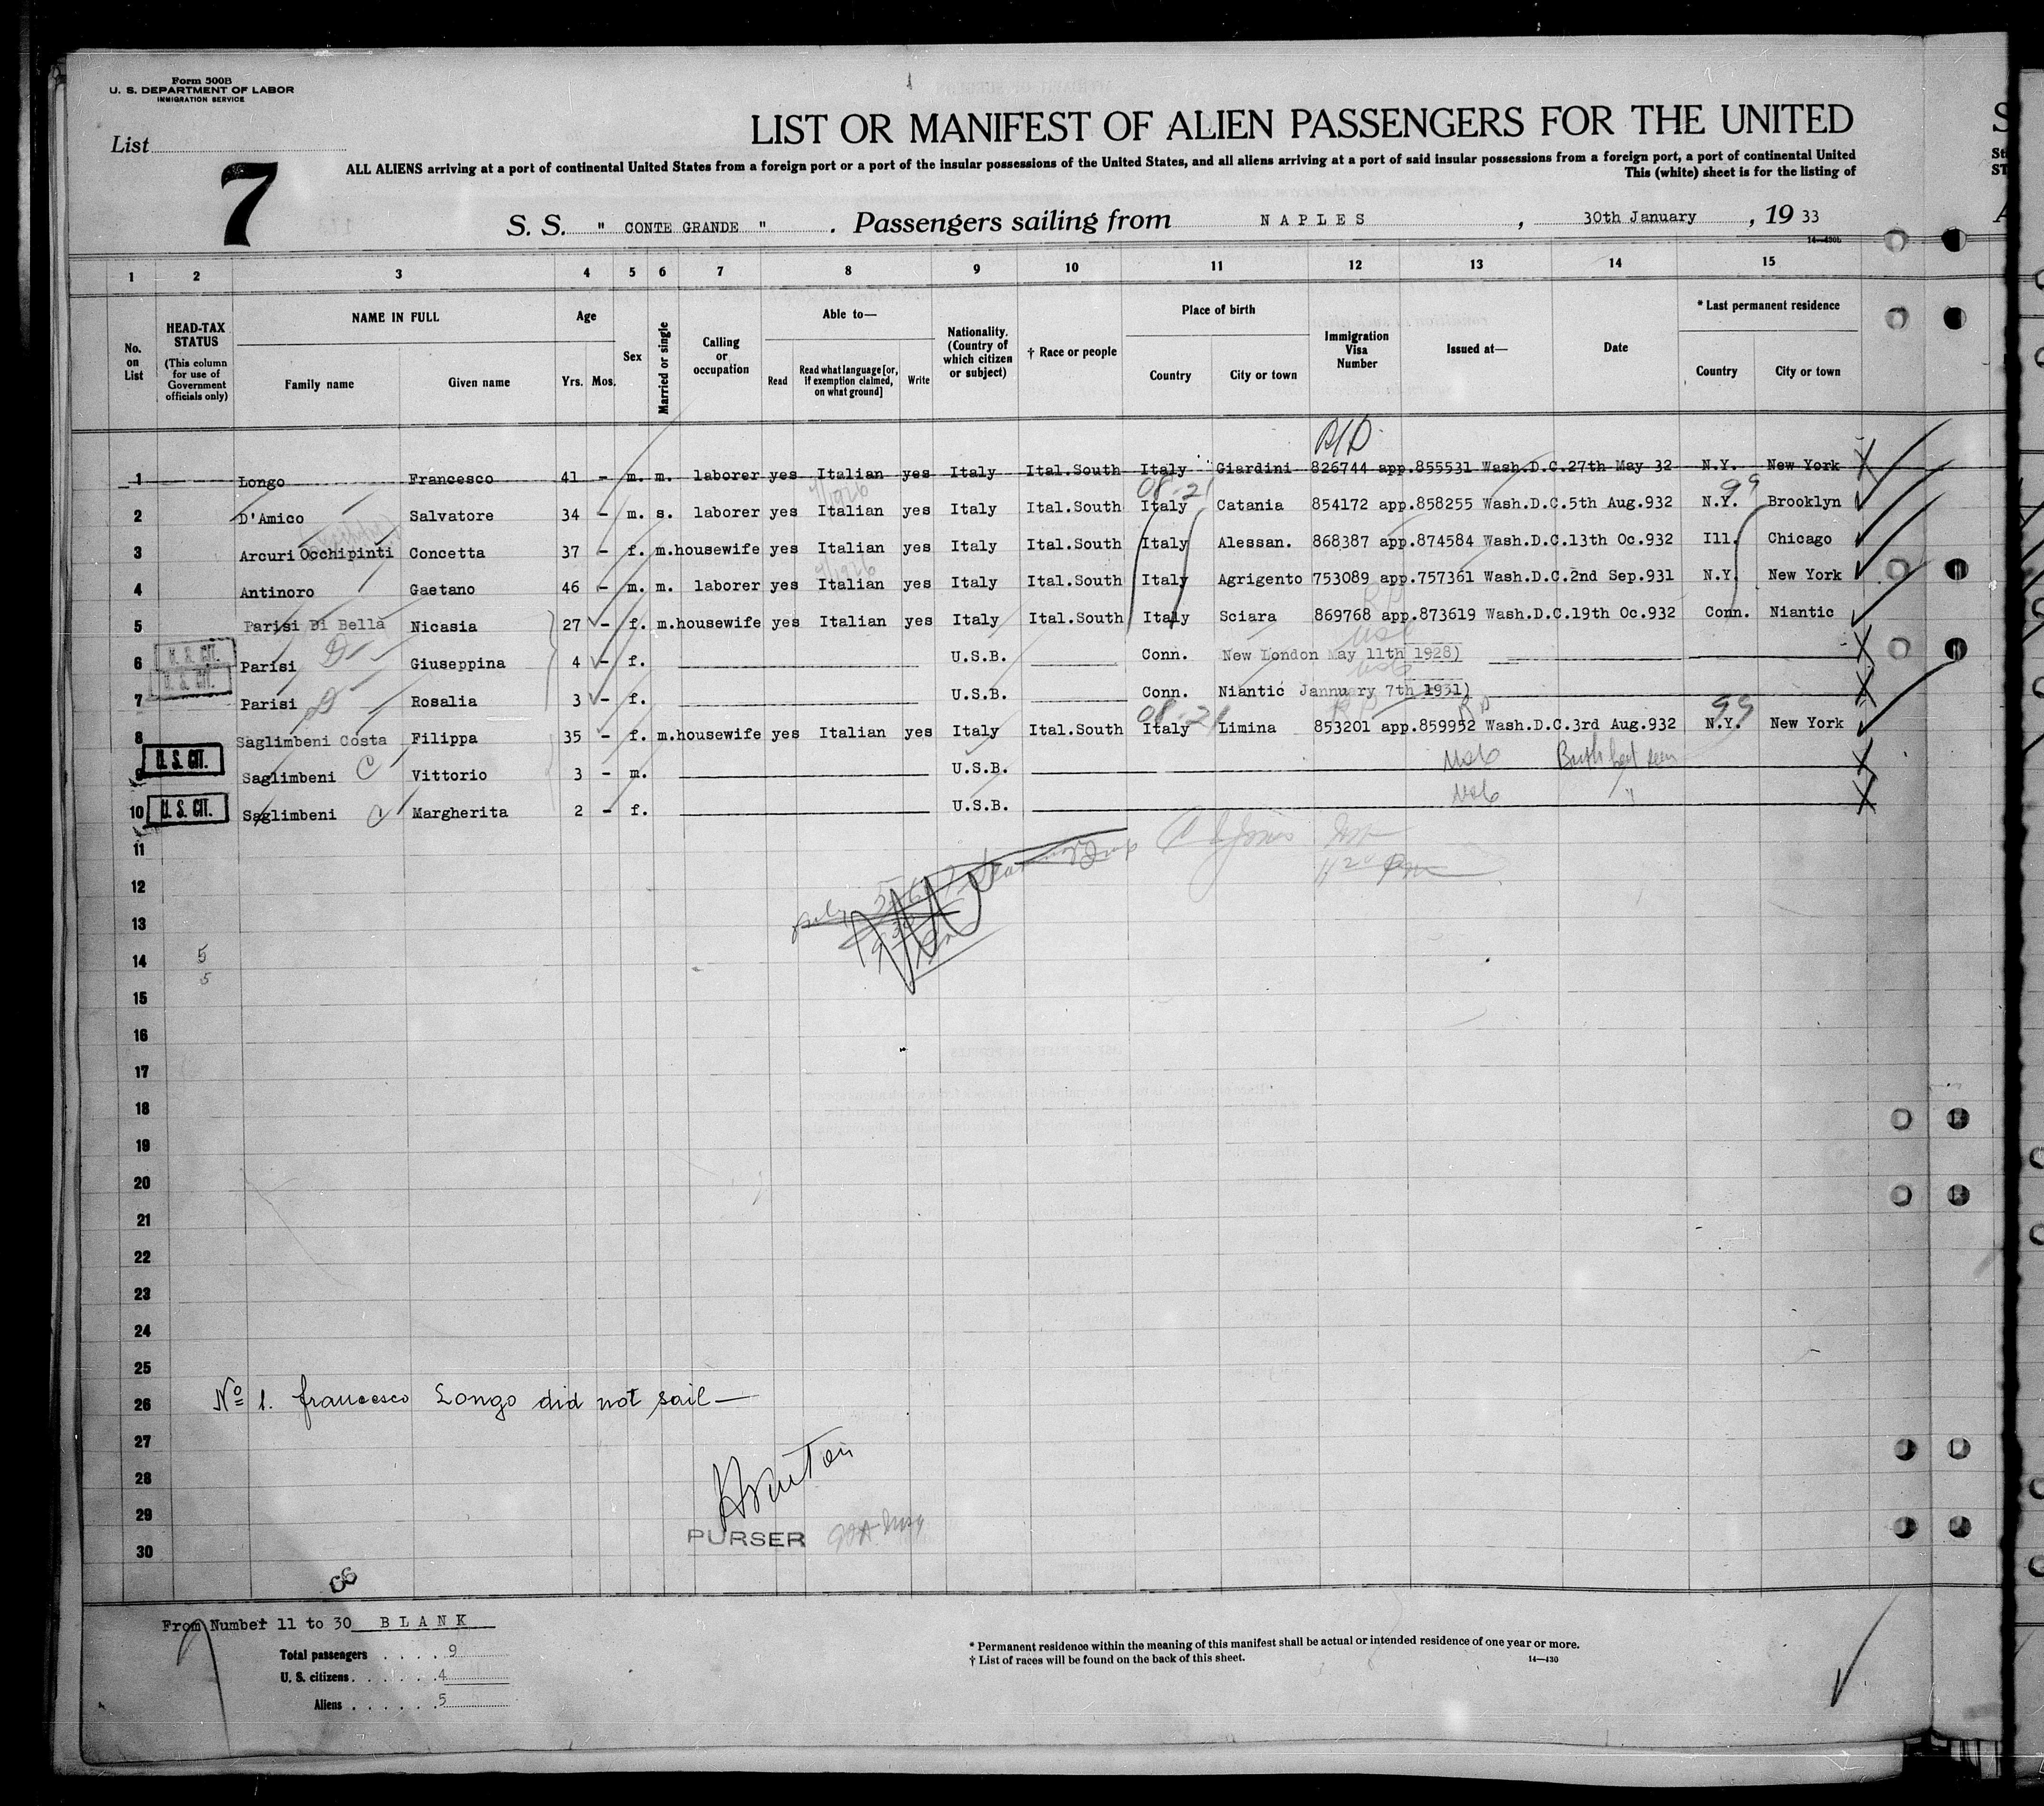 Form 500B
U. S. DEPARTMENT OF LABOR
IMMIGRATION SERVICE
List
7
LIST OR MANIFEST OF ALIEN PASSENGERS FOR THE UNITED
ALL ALIENS arriving at a port of continental United States from a foreign port or a port of the insular possessions of the United States, and all aliens arriving at a port of said insular possessions from a foreign port, a port of continental United
This (white) sheet is for the listing of
S. S. " CONTE GRANDE " . Passengers sailing from NAPLES , 30th January , 19 33
14—430b
1 2 3 4 5 6 7 8 9 10 11 12 13 14 15
No. on List
HEAD-TAX STATUS
(This column for use of Government officials only)
NAME IN FULL
Family name Given name
Age
Yrs. Mos.
Sex
Married or single
Calling or occupation
Able to—
Read
Read what language [or, if exemption claimed, on what ground]
Write
Nationality. (Country of which citizen or subject)
† Race or people
Place of birth
Country City or town
Immigration Visa Number
Issued at—
Date
* Last permanent residence
Country City or town
1 Longo Francesco 41 - m. m. laborer yes Italian yes Italy Ital.South Italy Giardini 826744 app.855531 Wash.D.C.27th May 32 N.Y. New York
08-21 99
2 D'Amico Salvatore 34 - m. s. laborer yes Italian yes Italy Ital.South Italy Catania 854172 app.858255 Wash.D.C.5th Aug.932 N.Y. Brooklyn
3 Arcuri Occhipinti Concetta 37 - f. m. housewife yes Italian yes Italy Ital.South Italy Alessan. 868387 app.874584 Wash.D.C.13th Oc.932 Ill. Chicago
4 Antinoro Gaetano 46 - m. m. laborer yes Italian yes Italy Ital.South Italy Agrigento 753089 app.757361 Wash.D.C.2nd Sep.931 N.Y. New York
5 Parisi Di Bella Nicasia 27 - f. m. housewife yes Italian yes Italy Ital.South Italy Sciara 869768 app.873619 Wash.D.C.19th Oc.932 Conn. Niantic
U. S. CIT.
6 Parisi Giuseppina 4 - f. U.S.B. Conn. New London May 11th 1928)
U. S. CIT.
7 Parisi Rosalia 3 - f. U.S.B. Conn. Niantic Jannuary 7th 1931)
08-21 99
8 Saglimbeni Costa Filippa 35 - f. m. housewife yes Italian yes Italy Ital.South Italy Limina 853201 app.859952 Wash.D.C.3rd Aug.932 N.Y. New York
U. S. CIT.
9 Saglimbeni C Vittorio 3 - m. U.S.B.
U. S. CIT.
10 Saglimbeni C Margherita 2 - f. U.S.B.
11
12
13
14 5
5
15
16
17
18
19
20
21
22
23
24
25
26 Nº 1. Francesco Longo did not sail—
27
28
29
PURSER
30
From Number 11 to 30 BLANK
Total passengers . . . . 9
U. S. citizens . . . . . . 4
Aliens . . . . . . 5
* Permanent residence within the meaning of this manifest shall be actual or intended residence of one year or more.
† List of races will be found on the back of this sheet.
14—430